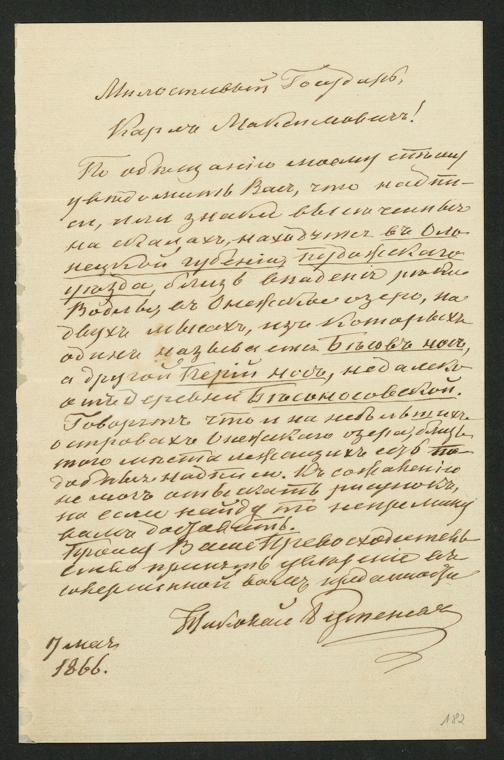 Милостивый Государь,
Карлъ Максимовичъ!
По обѣщанію моему спѣшу
увѣдомить Васъ, что надпи-
си, или знаки высѣченныя
на скалахъ, находятся въ Оло-
нецкой губерніи, пудожскаго
уѣзда, близь впаденія рѣки
Водлы, въ Онежское озеро, на
двухъ мысахъ, изъ которыхъ
одинъ называется Бѣсовъ носъ,
а другой Перій носъ, недалеко
отъ деревни Бѣсоносовской.
Говорятъ что и на небольшихъ
островахъ Онежскаго озера, близь
того мѣста лежащихъ есть по-
добныя надписи. Къ сожалѣнію
не могъ отыскать рисунокъ,
но если найду то непремѣнно
вамъ доставлю.
Прошу Ваше Превосходитель-
ство принять увѣреніе въ
совершенной вамъ преданности
Николай
7 мая
1866.
182